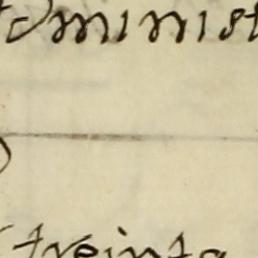 dminist
treinta